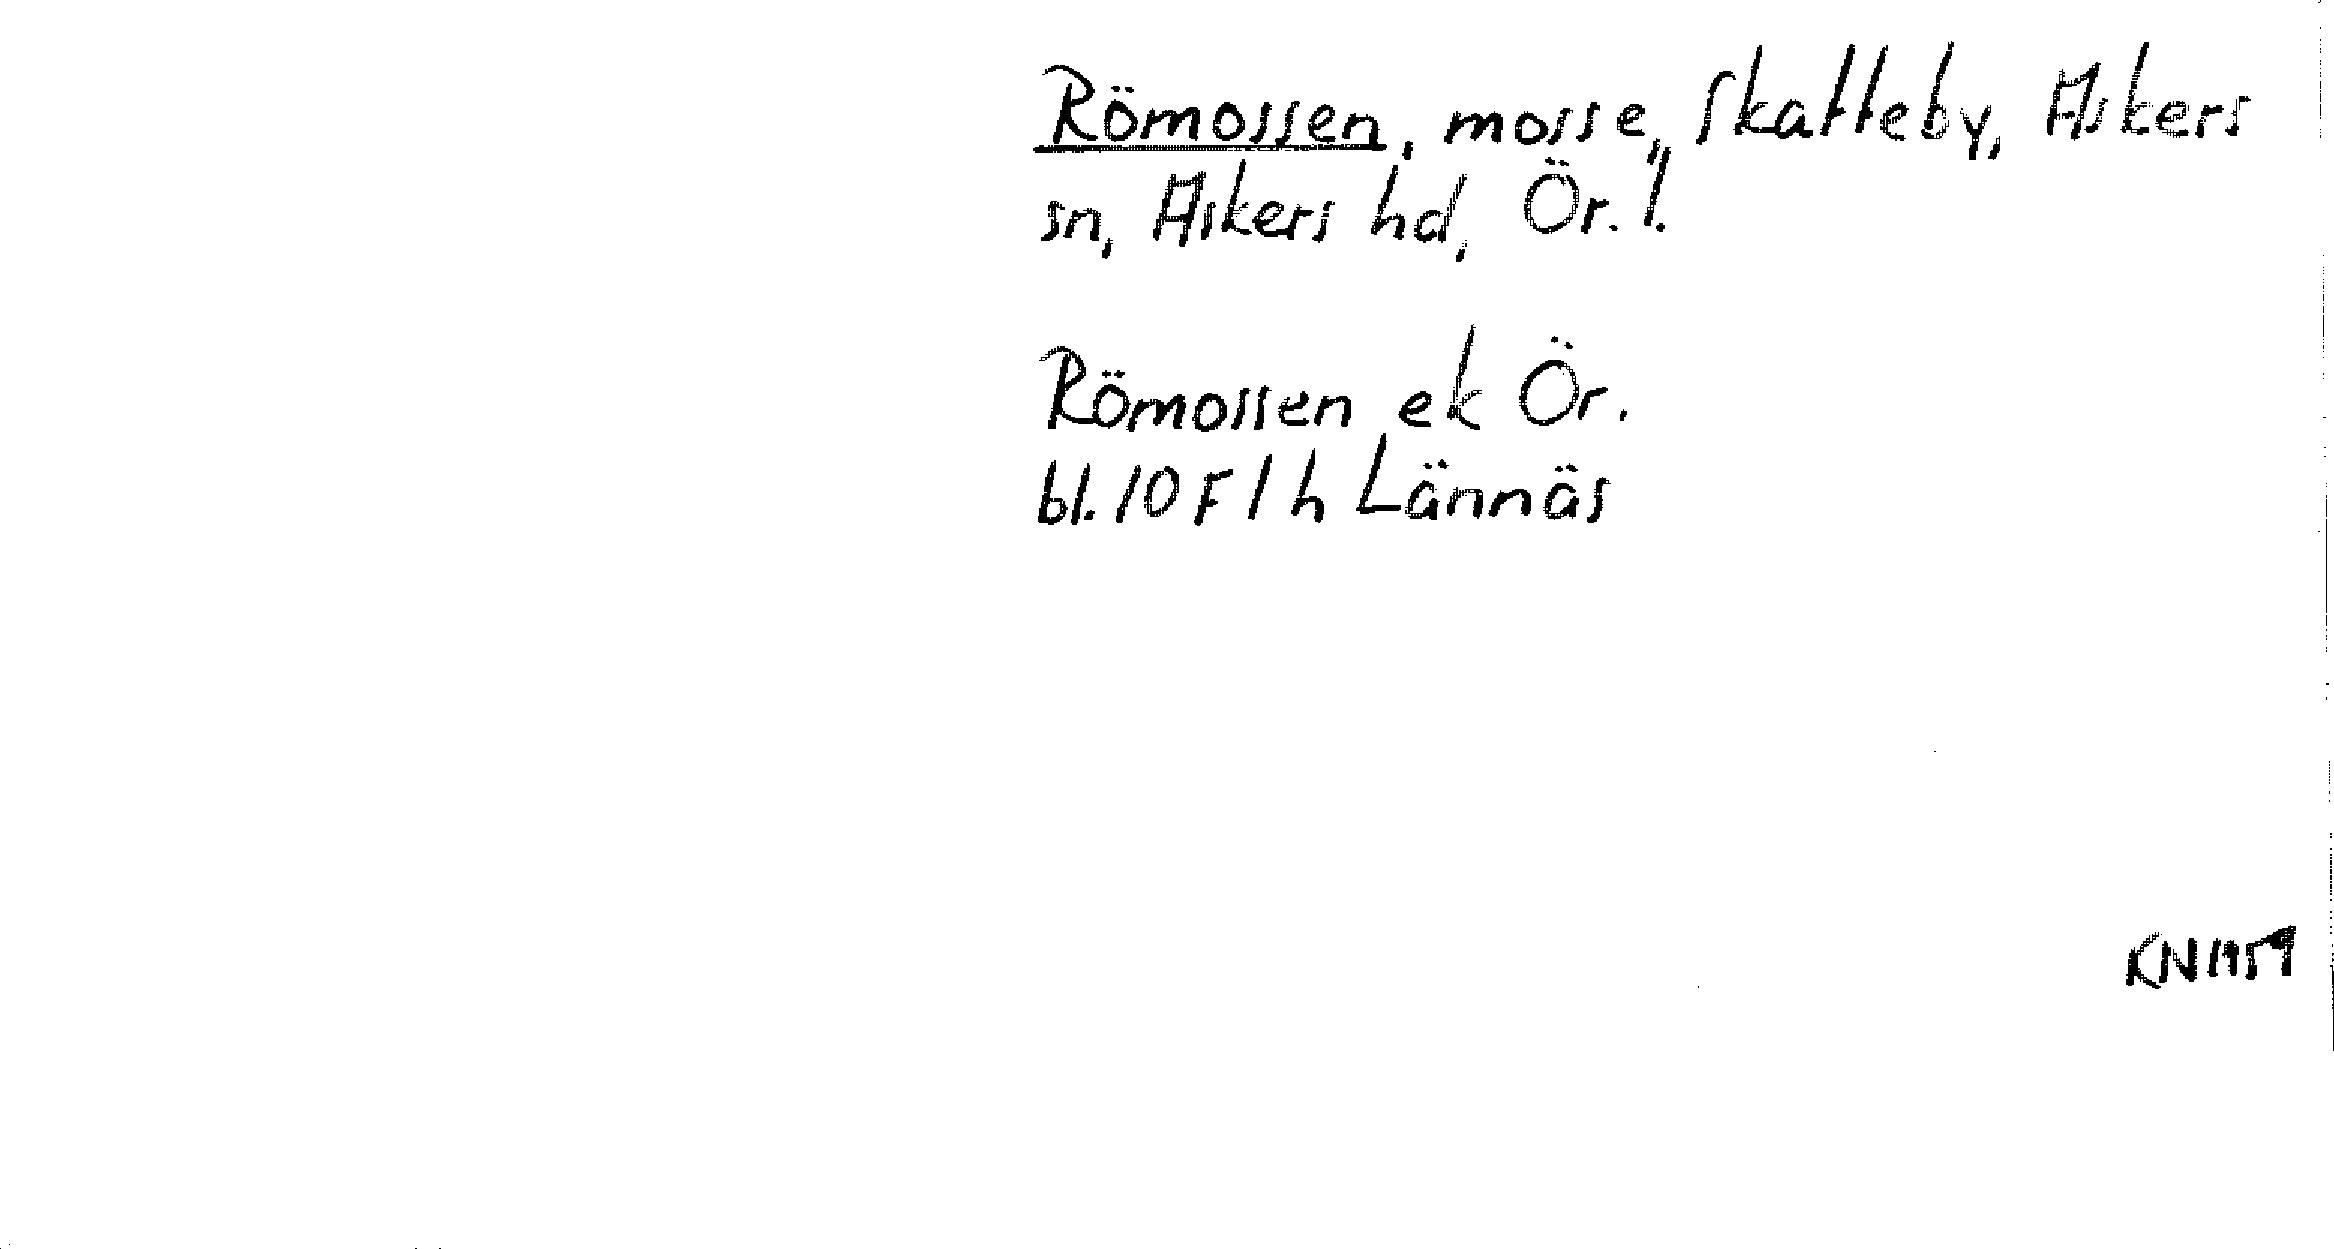 Römossen, mosse, Skatteby, Askers
sn, Askers hd, Ör. l.
Römossen ek Ör.
bl. 10 F 1 h Lännäs
KN 1959